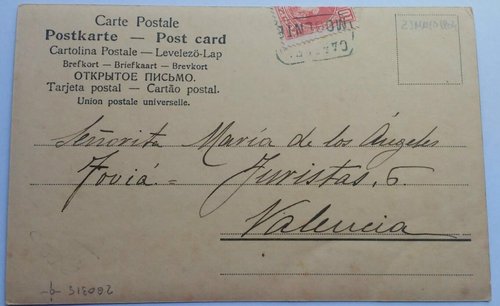 Carte Postale
Postkarte — Post card
Cartolina Postale — Levelező-Lap
Brefkort — Briefkaart — Brevkort
ОТКРЫТОЕ ПИСЬМО.
Tarjeta postal — Cartão postal.
Union postale universelle.
Señorita María de los Ángeles
Joviá = Juristas, 6
Valencia